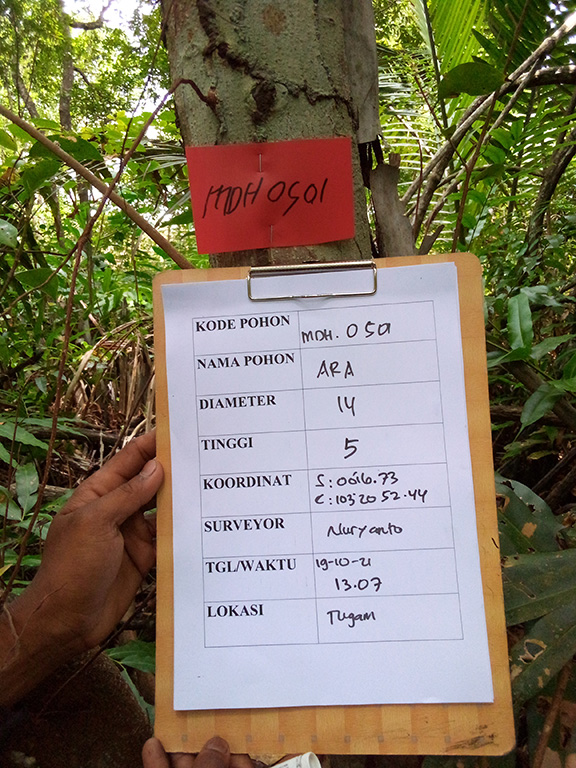 MDH 0501
KODE POHON MDH. 0501
NAMA POHON ARA
DIAMETER 14
TINGGI 5
KOORDINAT S: 0616.73
E: 103 20 52.44
SURVEYOR Nuryanto
TGL/WAKTU 19-10-21
13.07
LOKASI Tugam